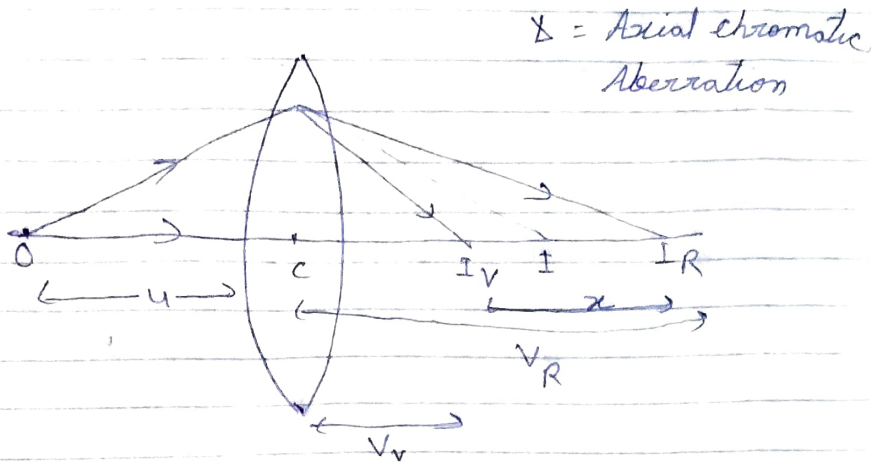 x = Axial chromatic
Aberration
O
C
I V
I
I R
u
x
V R
V v